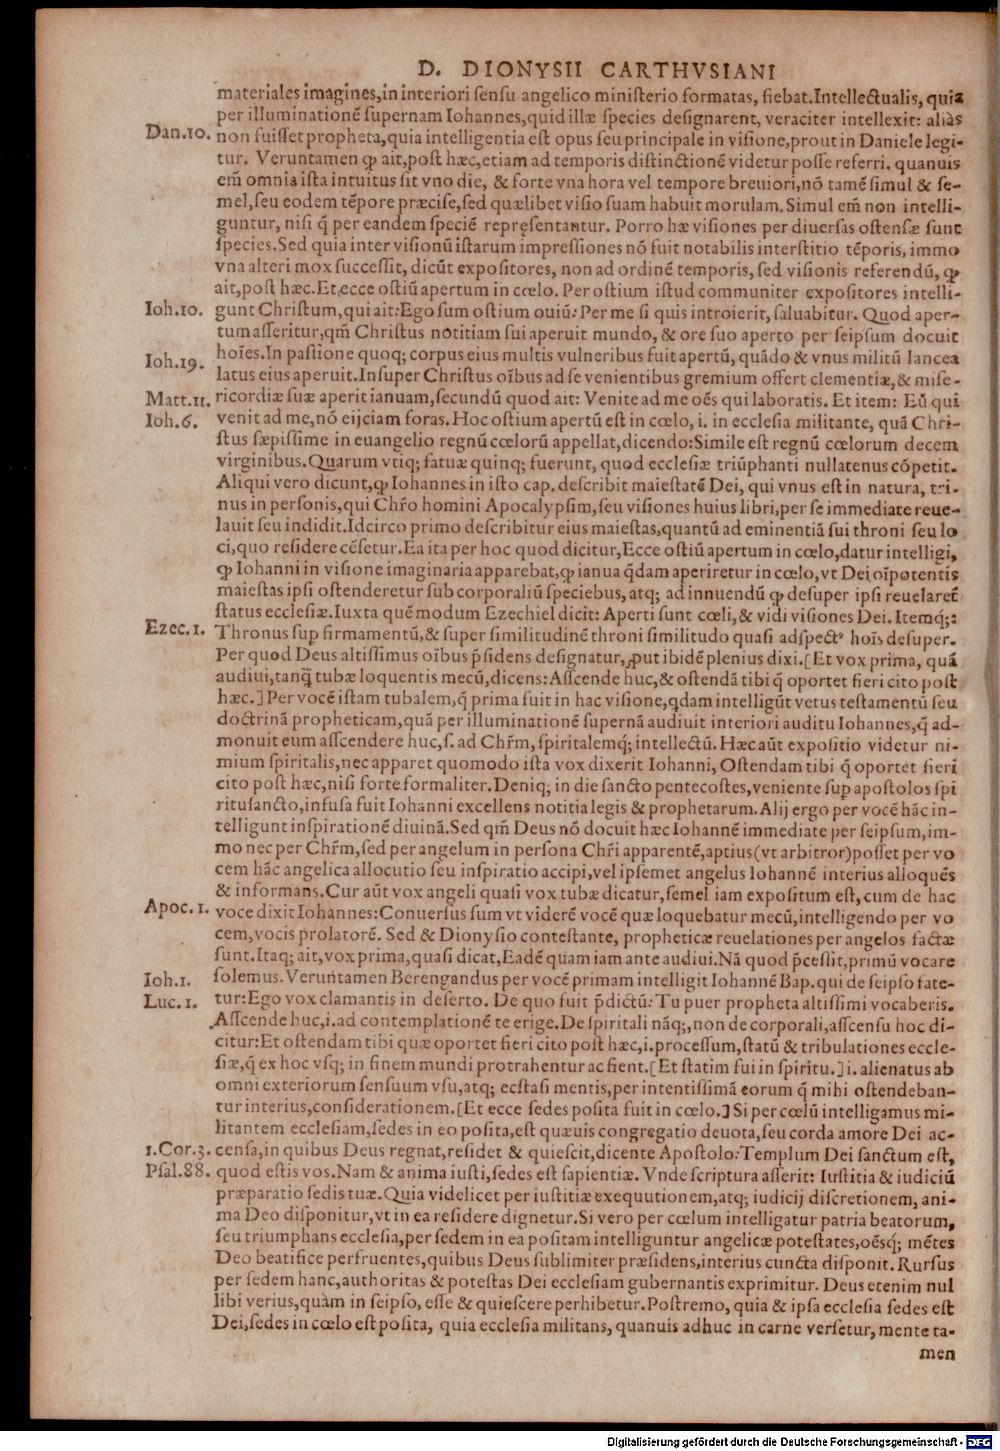 D. DIONYSII CARTHVSIANI
materiales imagines,in interiori sensu angelico ministerio formatas, fiebat.Intellectualis, quia
per illuminationẽ supernam Iohannes,quid illæ species designarent, veraciter intellexit: aliàs
Dan.10.
non fuisset propheta,quia intelligentia est opus seu principale in visione,prout in Daniele legi-
tur. Veruntamen ꝙ ait,post hæc,etiam ad temporis distinctionẽ videtur posse referri. quanuis
em̃ omnia ista intuitus sit vno die, & forte vna hora vel tempore breuiori,nõ tamẽ simul & se-
mel,seu eodem tẽpore præcise,sed quælibet visio suam habuit morulam. Simul em̃ non intelli-
guntur, nisi q̃ per eandem speciẽ repręsentantur. Porro hæ visiones per diuersas ostensæ sunt
species.Sed quia inter visionũ istarum impressiones nõ fuit notabilis interstitio tẽporis, immo
vna alteri mox successit, dicũt expositores, non ad ordinẽ temporis, sed visionis referendũ, ꝙ
ait,post hæc.Et,ecce ostiũ apertum in cœlo. Per ostium istud communiter expositores intelli-
Ioh.10.
gunt Christum,qui ait:Ego sum ostium ouiũ: Per me si quis introierit, saluabitur. Quod aper-
tum asseritur,qm̃ Christus notitiam sui aperuit mundo, & ore suo aperto per seipsum docuit
hoĩes.In passione quoq; corpus eius multis vulneribus fuit apertũ, quãdo & vnus militũ lancea
Ioh.19.
latus eius aperuit.Insuper Christus oĩbus ad se venientibus gremium offert clementiæ,& mise-
Matt.11.
ricordiæ suæ aperit ianuam,secundũ quod ait: Venite ad me oẽs qui laboratis. Et item: Eũ qui
Ioh.6.
venit ad me,nõ eijciam foras. Hoc ostium apertũ est in cœlo, i. in ecclesia militante, quã Chri-
stus sæpissime in euangelio regnũ cœlorũ appellat,dicendo:Simile est regnũ cœlorum decem
virginibus.Quarum vtiq; fatuæ quinq; fuerunt, quod ecclesiæ triũphanti nullatenus cõpetit.
Aliqui vero dicunt,ꝙ Iohannes in isto cap. describit maiestatẽ Dei, qui vnus est in natura, tri-
nus in personis,qui Chr̃o homini Apocalypsim,seu visiones huius libri,per se immediate reue-
lauit seu indidit.Idcirco primo describitur eius maiestas,quantũ ad eminentiã sui throni seu lo
ci,quo residere cẽsetur.Ea ita per hoc quod dicitur,Ecce ostiũ apertum in cœlo,datur intelligi,
ꝙ Iohanni in visione imaginaria apparebat,ꝙ ianua q̃dam aperiretur in cœlo,vt Dei oĩpotentis
maiestas ipsi ostenderetur sub corporaliũ speciebus, atq; ad innuendũ ꝙ desuper ipsi reuelaret̃
status ecclesiæ.Iuxta quẽ modum Ezechiel dicit: Aperti sunt cœli,& vidi visiones Dei. Itemq́;:
Ezec.1.
Thronus sup̃ firmamentũ,& super similitudinẽ throni similitudo quasi adspectꝰ hoĩs desuper.
Per quod Deus altissimus oĩbus p̃sidens designatur,ꝓut ibidẽ plenius dixi.[Et vox prima, quã
audiui,tanq̃ tubæ loquentis mecũ,dicens:Asscende huc,& ostendã tibi q̃ oportet fieri cito post
hæc.] Per vocẽ istam tubalem,q̃ prima fuit in hac visione,q̃dam intelligũt vetus testamentũ seu
doctrinã propheticam,quã per illuminationẽ supernã audiuit interiori auditu Iohannes,q̃ ad-
monuit eum asscendere huc,s. ad Chr̃m, spiritalemq́; intellectũ. Hæc aũt expositio videtur ni-
mium spiritalis,nec apparet quomodo ista vox dixerit Iohanni, Ostendam tibi q̃ oportet fieri
cito post hæc,nisi forte formaliter. Deniq; in die sancto pentecostes,veniente sup̃ apostolos spi
ritusancto,infusa fuit Iohanni excellens notitia legis & prophetarum. Alij ergo per vocẽ hãc in-
telligunt inspirationẽ diuinã.Sed qm̃ Deus nõ docuit hæc Iohannẽ immediate per seipsum,im-
mo nec per Chr̃m,sed per angelum in persona Chr̃i apparentẽ,aptius(vt arbitror)posset per vo
cem hãc angelica allocutio seu inspiratio accipi,vel ipsemet angelus Iohannẽ interius alloquẽs
& informans. Cur aũt vox angeli quasi vox tubæ dicatur,semel iam expositum est, cum de hac
Apoc.1.
voce dixit Iohannes:Conuersus sum vt viderẽ vocẽ quæ loquebatur mecũ,intelligendo per vo
cem,vocis prolatorẽ. Sed & Dionysio contestante, propheticæ reuelationes per angelos factæ
sunt.Itaq; ait,vox prima,quasi dicat,Eadẽ quam iam ante audiui. Nã quod p̃cessit,primũ vocare
Ioh.1.
solemus. Veruntamen Berengandus per vocẽ primam intelligit Iohannẽ Bap. qui de seipso fate-
Luc.1.
tur:Ego vox clamantis in deserto. De quo fuit p̃dictũ: Tu puer propheta altissimi vocaberis.
Asscende huc,i.ad contemplationẽ te erige.De spiritali nãq;,non de corporali,asscensu hoc di-
citur:Et ostendam tibi quæ oportet fieri cito post hæc,i.processum,statũ & tribulationes eccle-
siæ,q̃ ex hoc vsq; in finem mundi protrahentur ac fient.[Et statim fui in spiritu.] i. alienatus ab
omni exteriorum sensuum vsu,atq; ecstasi mentis,per intentissimã eorum q̃ mihi ostendeban-
tur interius,considerationem.[Et ecce sedes posita fuit in cœlo.] Si per cœlũ intelligamus mi-
litantem ecclesiam,sedes in eo posita,est quæuis congregatio deuota,seu corda amore Dei ac-
1.Cor.3.
censa,in quibus Deus regnat,residet & quiescit,dicente Apostolo:Templum Dei sanctum est,
Psal.88.
quod estis vos.Nam & anima iusti,sedes est sapientiæ. Vnde scriptura asserit: Iustitia & iudiciũ
præparatio sedis tuæ. Quia videlicet per iustitiæ exequutionem,atq; iudicij discretionem, ani-
ma Deo disponitur,vt in ea residere dignetur.Si vero per cœlum intelligatur patria beatorum,
seu triumphans ecclesia,per sedem in ea positam intelliguntur angelicæ potestates,oẽsq́; mẽtes
Deo beatifice perfruentes,quibus Deus sublimiter præsidens,interius cuncta disponit. Rursus
per sedem hanc,authoritas & potestas Dei ecclesiam gubernantis exprimitur. Deus etenim nul
libi verius,quàm in seipso, esse & quiescere perhibetur.Postremo, quia & ipsa ecclesia sedes est
Dei,sedes in cœlo est posita, quia ecclesia militans, quanuis adhuc in carne versetur,mente ta-
men
Digitalisierung gefördert durch die Deutsche Forschungsgemeinschaft - DFG